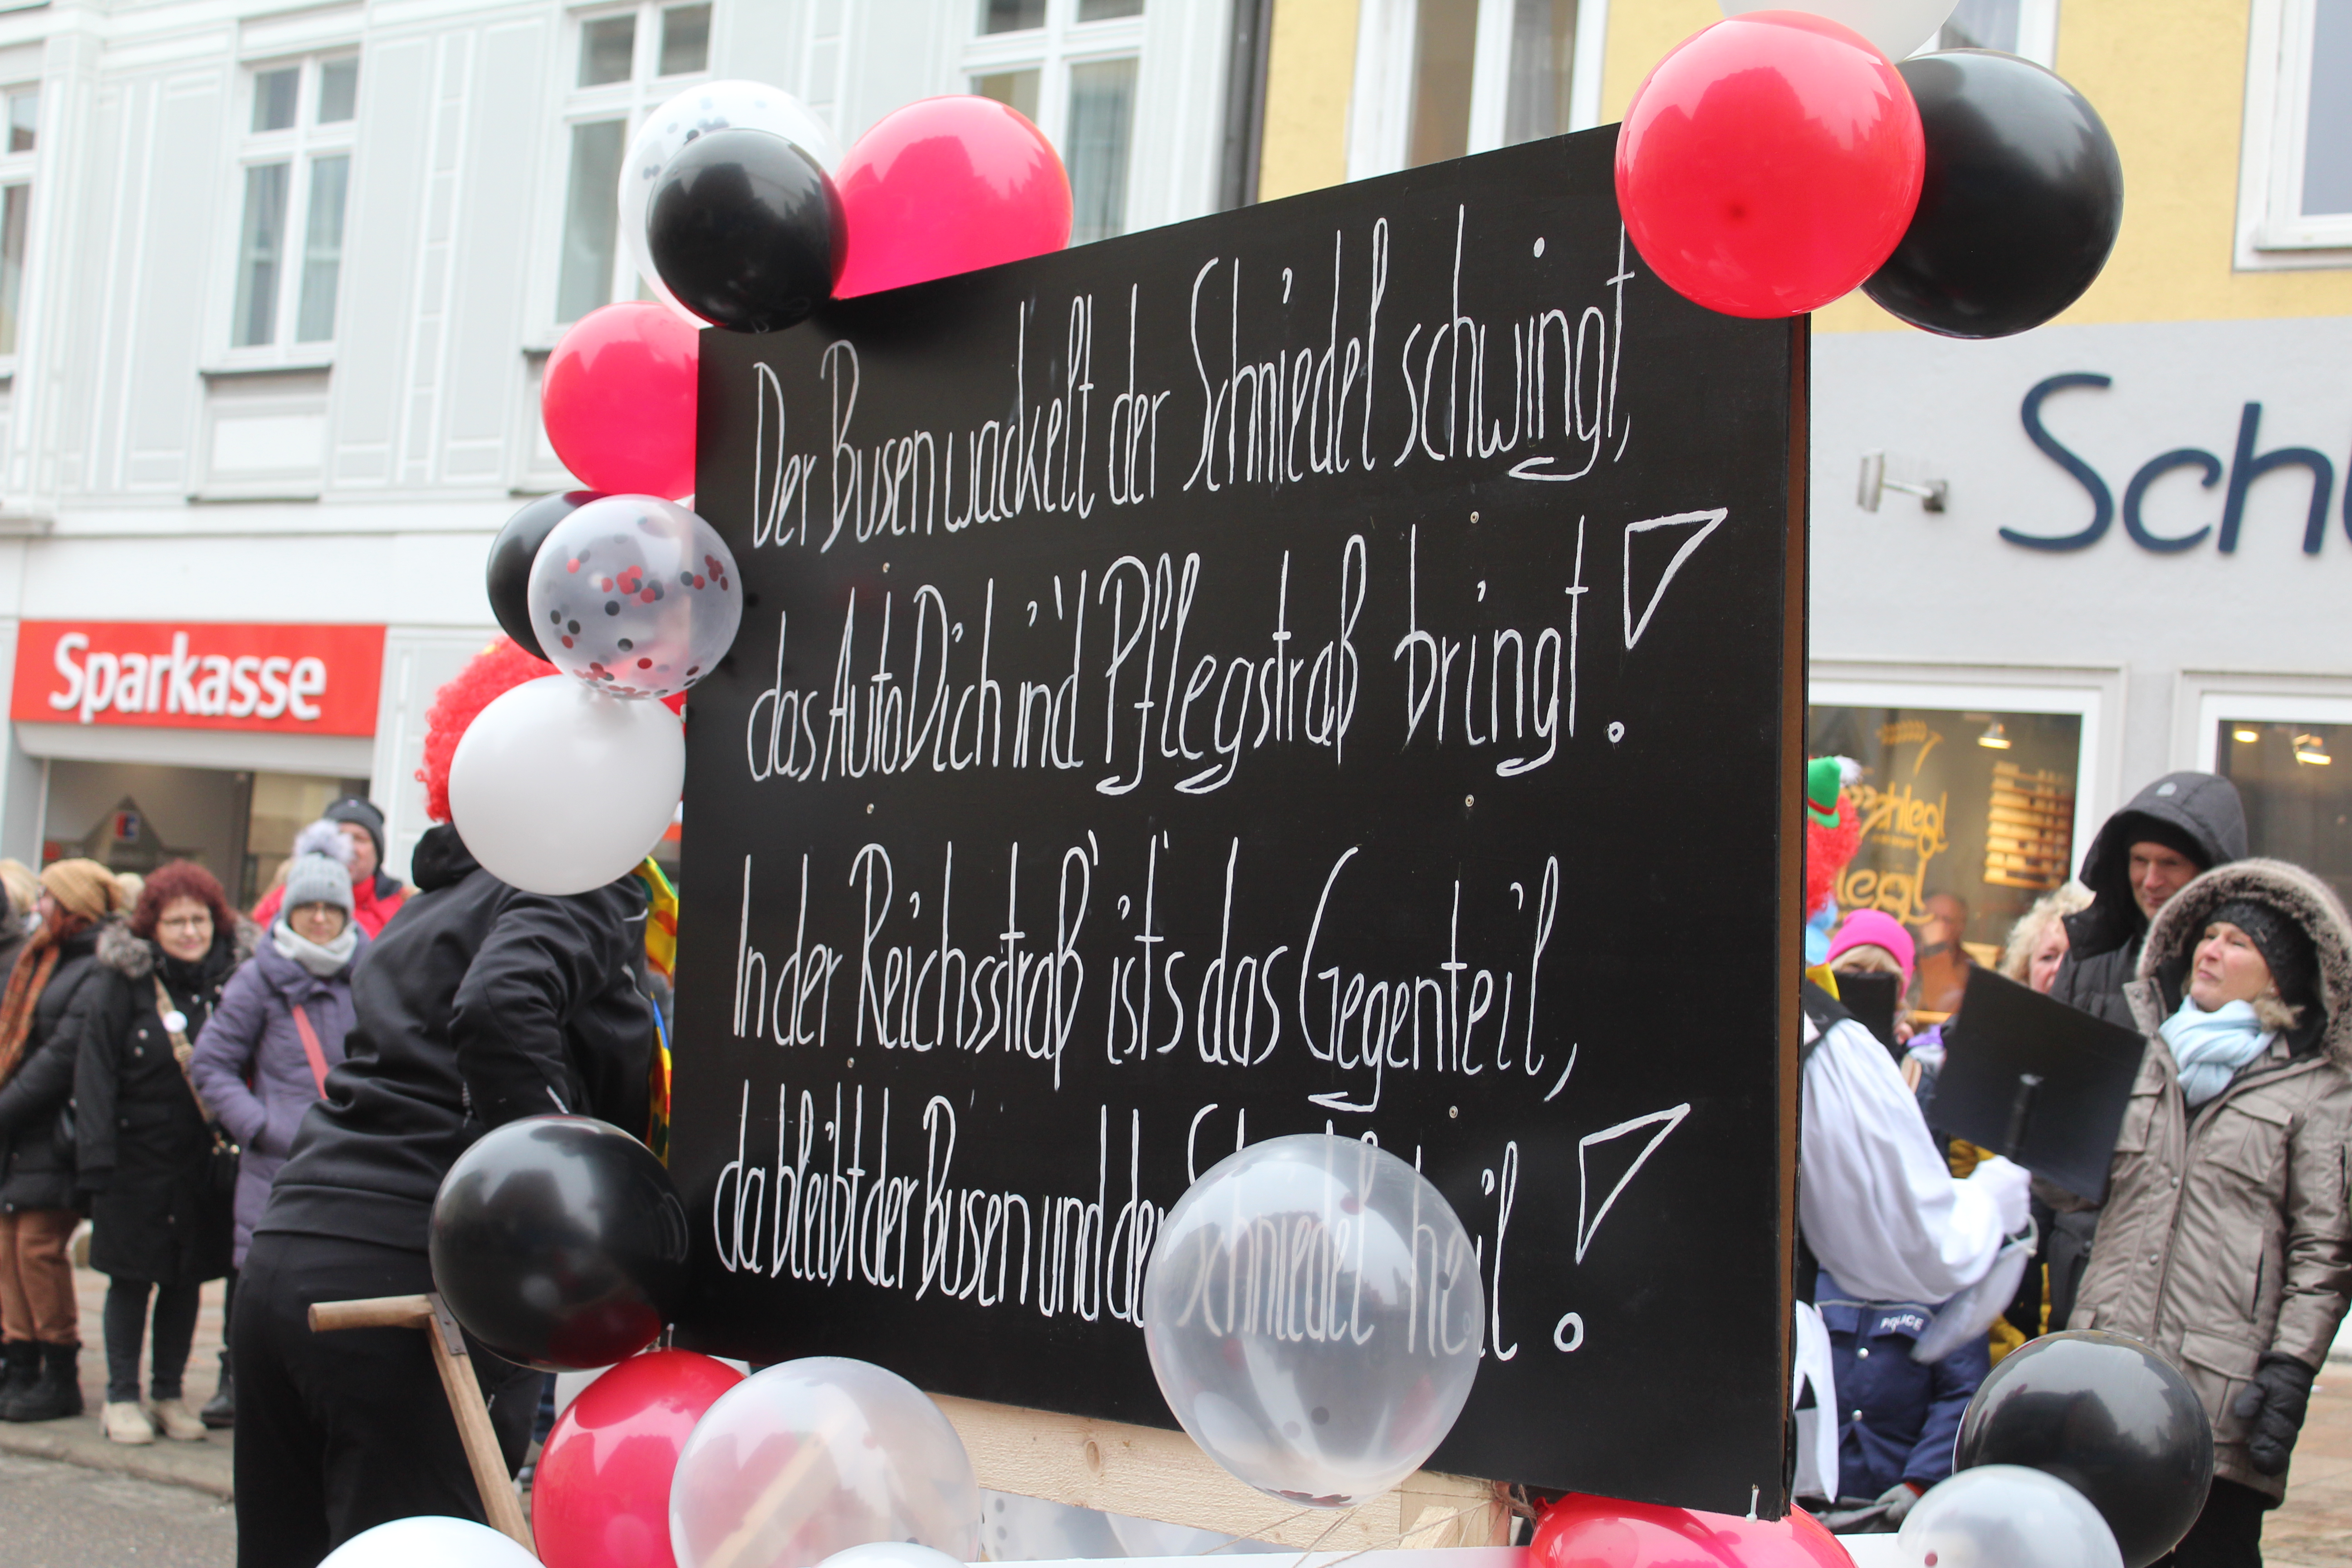 Der Busen wackelt der Schniedel schwingt,
das Auto Dich ind' Pflegstraß bringt!
In der Reichsstraß' ist's das Gegenteil,
da bleibt der Busen und der Schniedel heil!
Sparkasse
Sch
POLICE